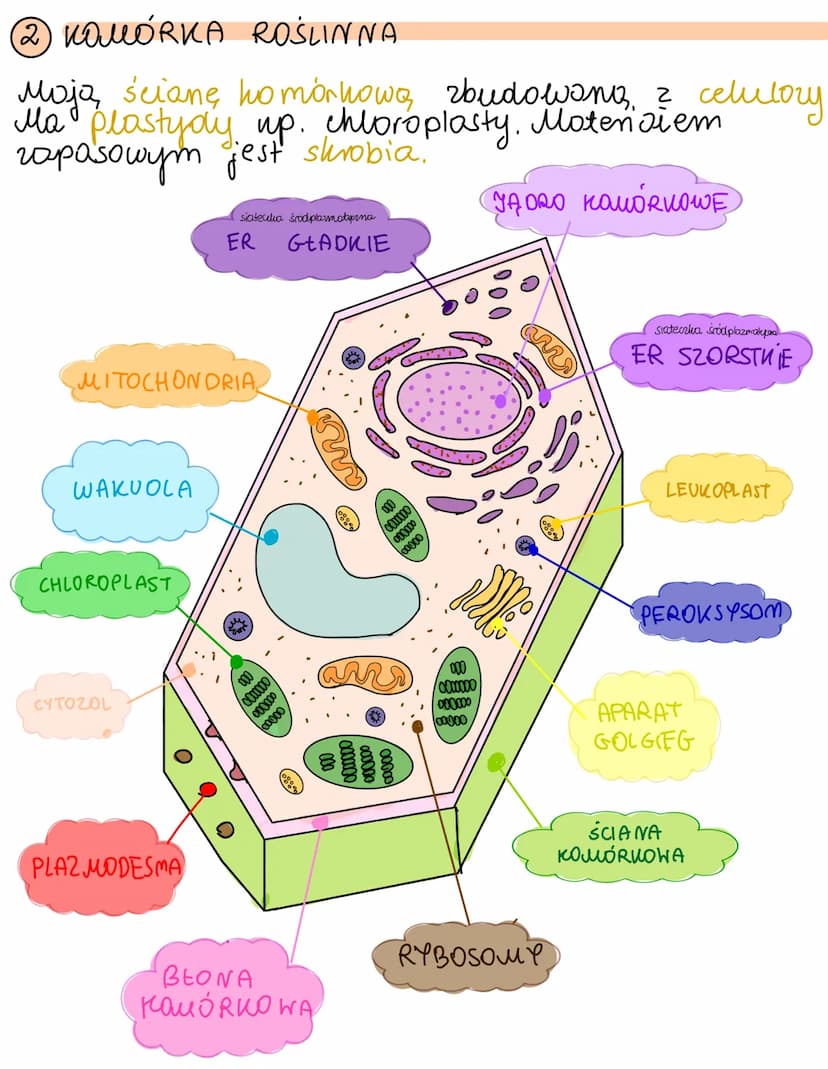 2 KOMÓRKA ROŚLINNA
Mają ścianę komórkową zbudowaną z celulozy
Ma plastydy np. chloroplasty. Materiałem
zapasowym jest skrobia.
siateczka śródplazmatyczna
ER GŁADKIE
JĄDRO KOMÓRKOWE
siateczka śródplazmatyczna
ER SZORSTKIE
MITOCHONDRIA
WAKUOLA
LEUKOPLAST
CHLOROPLAST
PEROKSYSOM
CYTOZOL
APARAT
GOLGIEG
ŚCIANA
KOMÓRKOWA
PLAZMODESMA
RYBOSOMY
BŁONA
KOMÓRKOWA